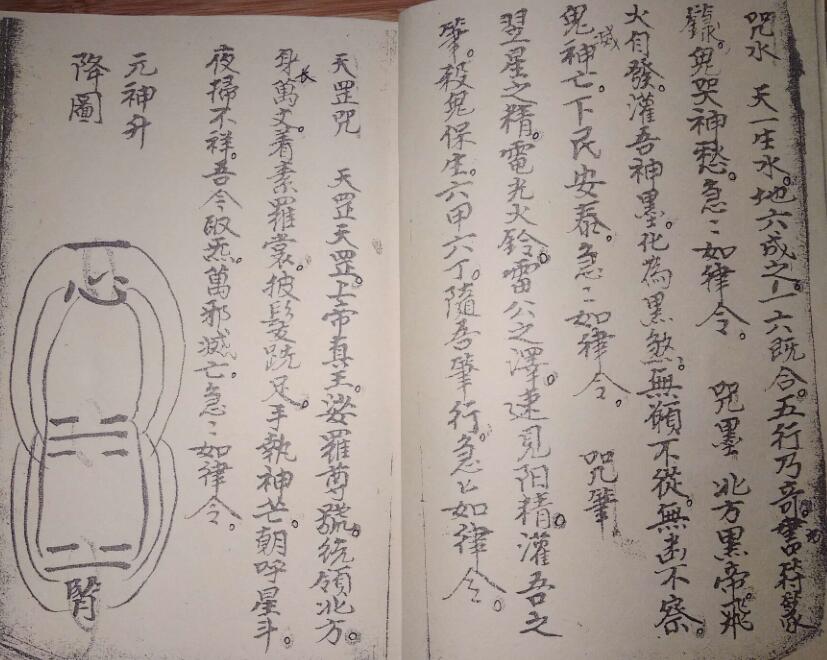 咒水　天一生水。地六成之。一六既合。五行乃奇。書符篆
籙。鬼哭神愁。急〻如律令。　咒墨　北方黑帝。飛
火自發。灌吾神墨。化為黑煞。無願不從。無幽不察。
鬼滅神亡。下民安泰。急〻如律令。　咒筆
翌星之精。電光火鈴。雷公之澤。速見阳精。灌吾之
筆。殺鬼保生。六甲六丁。隨吾筆行。急〻如律令。
天罡咒　天罡天罡。上帝真王。娑羅尊號。统領北方。
身長萬丈。着素羅裳。披髮跣足。手執神芒。朝呼星斗。
夜掃不祥。吾今敢炁。萬邪滅亡。急〻如律令。
元神升
降圖
心
腎